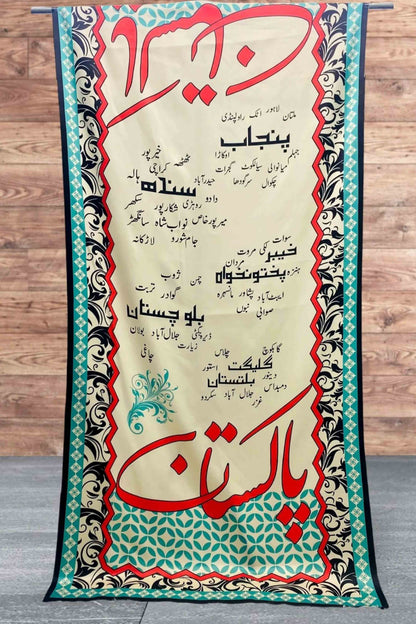 ملتان لاہور اٹک راولپنڈی
پنجاب
جہلم اوکاڑا
میانوالی سیالکوٹ گجرات
چکوال سرگودھا
خیرپور
ٹھٹھہ کراچی
حیدرآباد ہالہ
سندھ
دادو
روہڑی شکارپور سکھر
میرپورخاص نواب شاہ سانگھڑ
جامشورو لاڑکانہ
سوات
لکی مروت
خیبر
مردان
ہنزہ
پختونخواہ
ایبٹ آباد پشاور مانسہرہ
صوابی بنوں
چمن ژوب
گوادر تربت
بلوچستان
ڈیرہ بگٹی جلال آباد بولان
زیارت
چاغی
چلاس
گلگت
استور
دینور
بلتستان
غزر جلال آباد سکردو
پاکستان